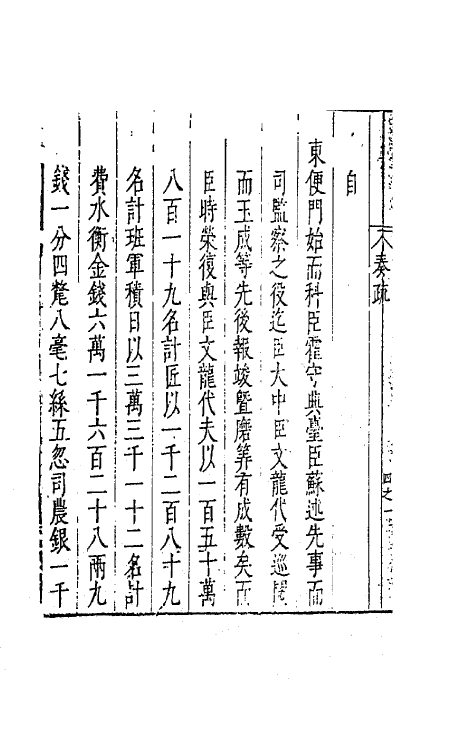 奏疏
自
東便門始而科臣霍守典臺臣蘇述先事而
司監察之役迄臣大中臣文龍代受巡
而玉成等先後報竣暨磨筭有成數矣而
臣時榮復與臣文龍代夫以一百五十萬
八百一十九名計匠以一千二百八十九
名計班軍積日以三萬三千一十二名計
費水衡金錢六萬一千六百二十八兩九
錢一分四氂八毫七絲五忽司農銀一千